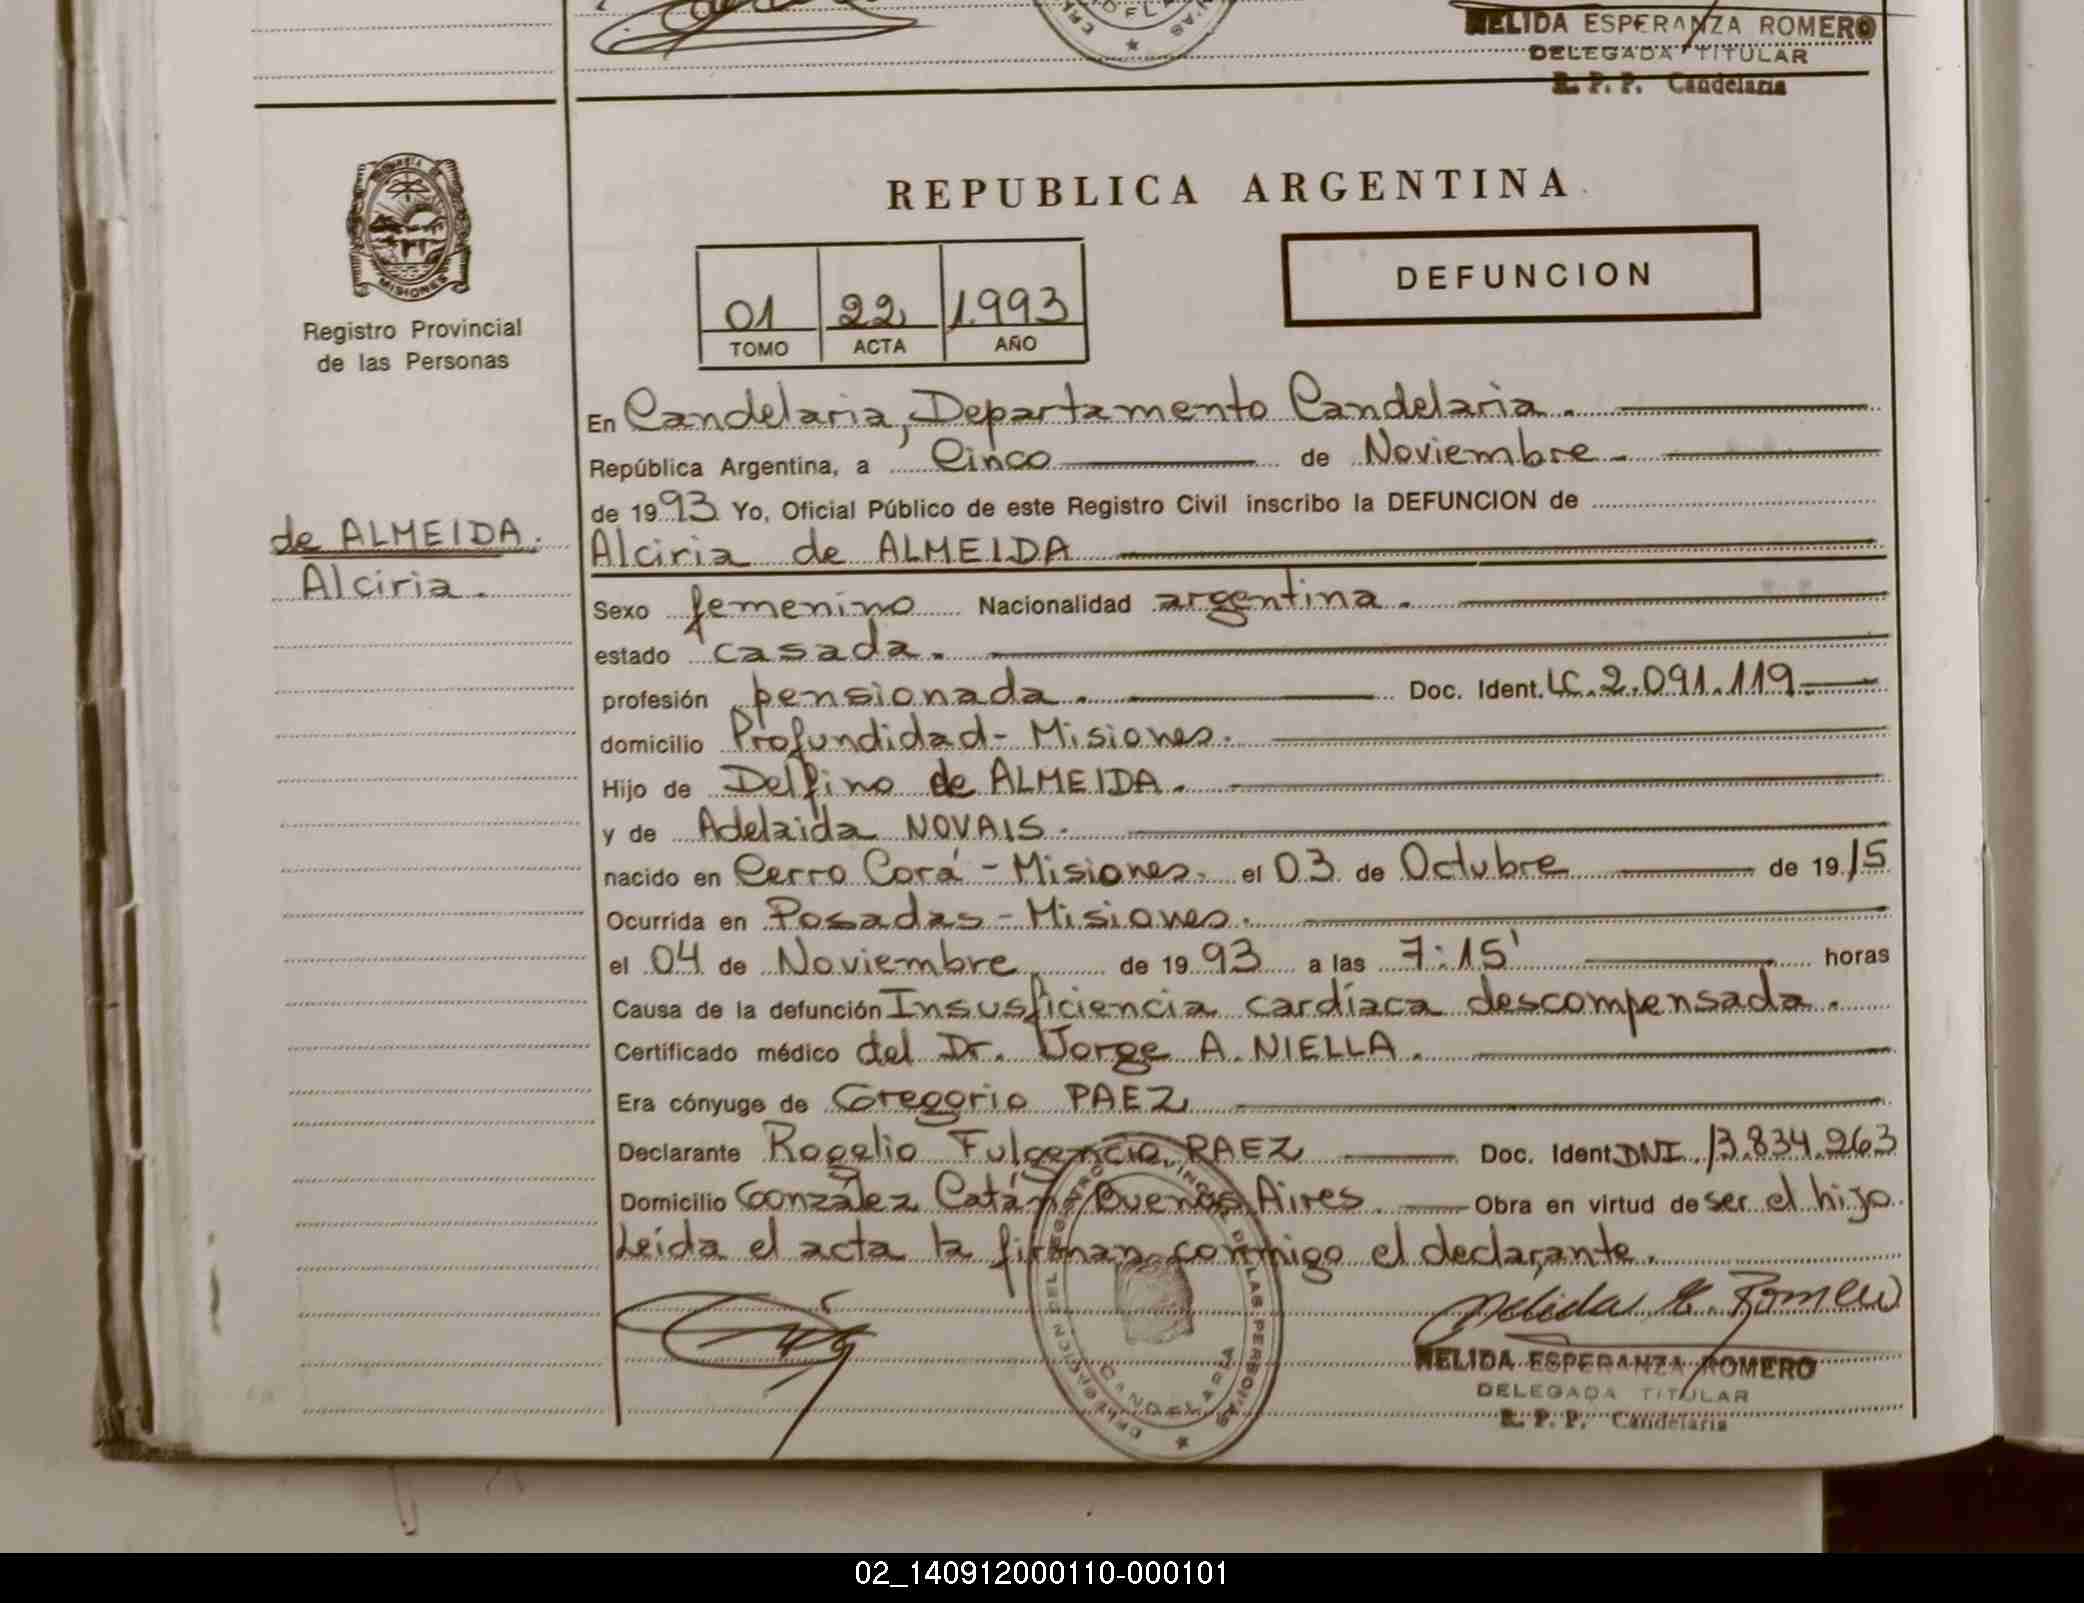 NELIDA ESPERANZA ROMERO
DELEGADA TITULAR
R. P. P. Candelaria
MISIONES
Registro Provincial
de las Personas
REPUBLICA ARGENTINA
01 22 1.993
TOMO ACTA AÑO
DEFUNCION
En Candelaria, Departamento Candelaria.
República Argentina, a Cinco de Noviembre
de 1993 Yo, Oficial Público de este Registro Civil inscribo la DEFUNCION de
de ALMEIDA.
Alciria.
Alciria de ALMEIDA
Sexo femenino Nacionalidad argentina.
estado casada.
profesión pensionada. Doc. Ident. LC. 2.091.119
domicilio Profundidad - Misiones.
Hijo de Delfino de ALMEIDA.
y de Adelaida NOVAIS.
nacido en Cerro Corá - Misiones. el 03 de Octubre de 1915
Ocurrida en Posadas - Misiones.
el 04 de Noviembre de 1993 a las 7:15' horas
Causa de la defunción Insusficiencia cardíaca descompensada.
Certificado médico del Dr. Jorge A. NIELLA.
Era cónyuge de Gregorio PAEZ
Declarante Rogelio Fulgencio PAEZ Doc. Ident. DNI. 13.834.263
Domicilio González Catán Buenos Aires. Obra en virtud de ser el hijo.
Leída el acta la firman conmigo el declarante.
Nelida E. Romero
NELIDA ESPERANZA ROMERO
DELEGADA TITULAR
R. P. P. Candelaria
CANDELARIA
02_140912000110-000101